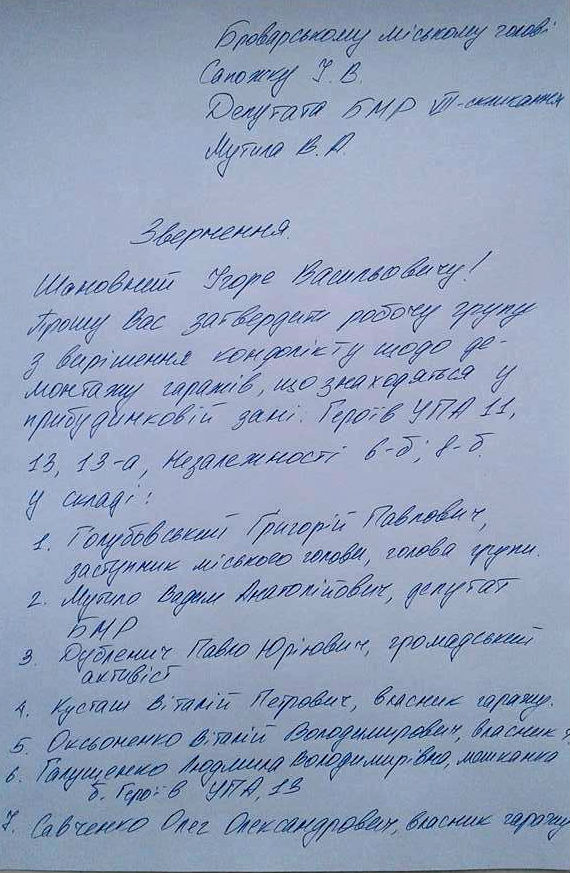 Броварському міському голові
Сапожку І. В.
Депутата БМР VII-скликання
Мутила В. А.
Звернення.
Шановний Ігоре Васильовичу!
Прошу Вас затвердити робочу групу
з вирішення конфлікту щодо де-
монтажу гаражів, що знаходяться у
прибудинковій зоні. Героїв УПА 11,
13, 13-а, Незалежності 6-б; 8-б.
у складі:
1. Голубовський Григорій Павлович,
заступник міського голови, голова групи.
2. Мутило Вадим Анатолійович, депутат
БМР
3. Дубленич Павло Юрійович, громадський
активіст
4. Кусташ Віталій Петрович, власник гаражу.
5. Оксьоненко Віталій Володимирович, власник
6. Галущенко Людмила Володимирівна, мешканка
б. Героїв УПА, 13
7. Савченко Олег Олександрович, власник гаражу